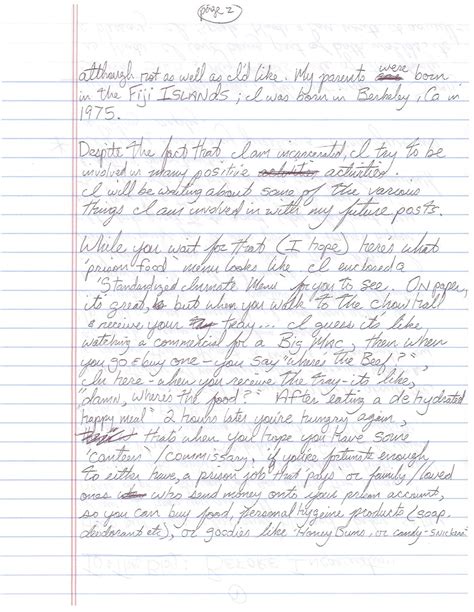 page 2
although not as well as I'd like. My parents were born
in the FIJI ISLANDS; I was born in Berkeley, Ca in
1975.
Despite the fact that I am incarcerated, I try to be
involved in many positive activities.
I will be writing about some of the various
things I am involved in with my future posts.
While you wait for that (I hope) here's what
"prison food" menu looks like. I enclosed a
"Standardized Inmate Menu" for you to see. ON paper,
it's great, but when you walk to the chowhall
& receive your tray... I guess it's like
watching a commercial for a Big Mac, then when
you go & buy one - you say "where's the Beef?",
In here - when you receive the tray - it's like,
"damn, where's the food?" After eating a dehydrated
happy meal" 2 hours later you're hungry again,
that's when you hope you have some
"canteen"/commissary. if you're fortunate enough
to either have, a prison job that pays or family/loved
ones who send money onto your prison account,
so you can buy food, personal hygiene products (soap,
deodorant etc), or goodies like "Honey Buns, or candy-snickers"